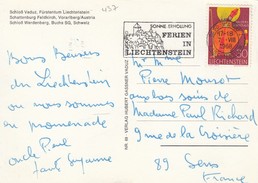 Schloß Vaduz, Fürstentum Liechtenstein
Schattenburg Feldkirch, Vorarlberg/Austria
Schloß Werdenberg, Buchs SG, Schweiz
SONNE ERHOLUNG
FERIEN
IN
LIECHTENSTEIN
50
LIECHTENSTEIN
Bons Baisers
du Liechtenstein
où nous sommes
en promenade
oncle Paul
tante Suzanne
Mr Mme
Pierre
aux bons soins de
Madame Paul Richard
9 rue de la Croisière
89 Sens
France